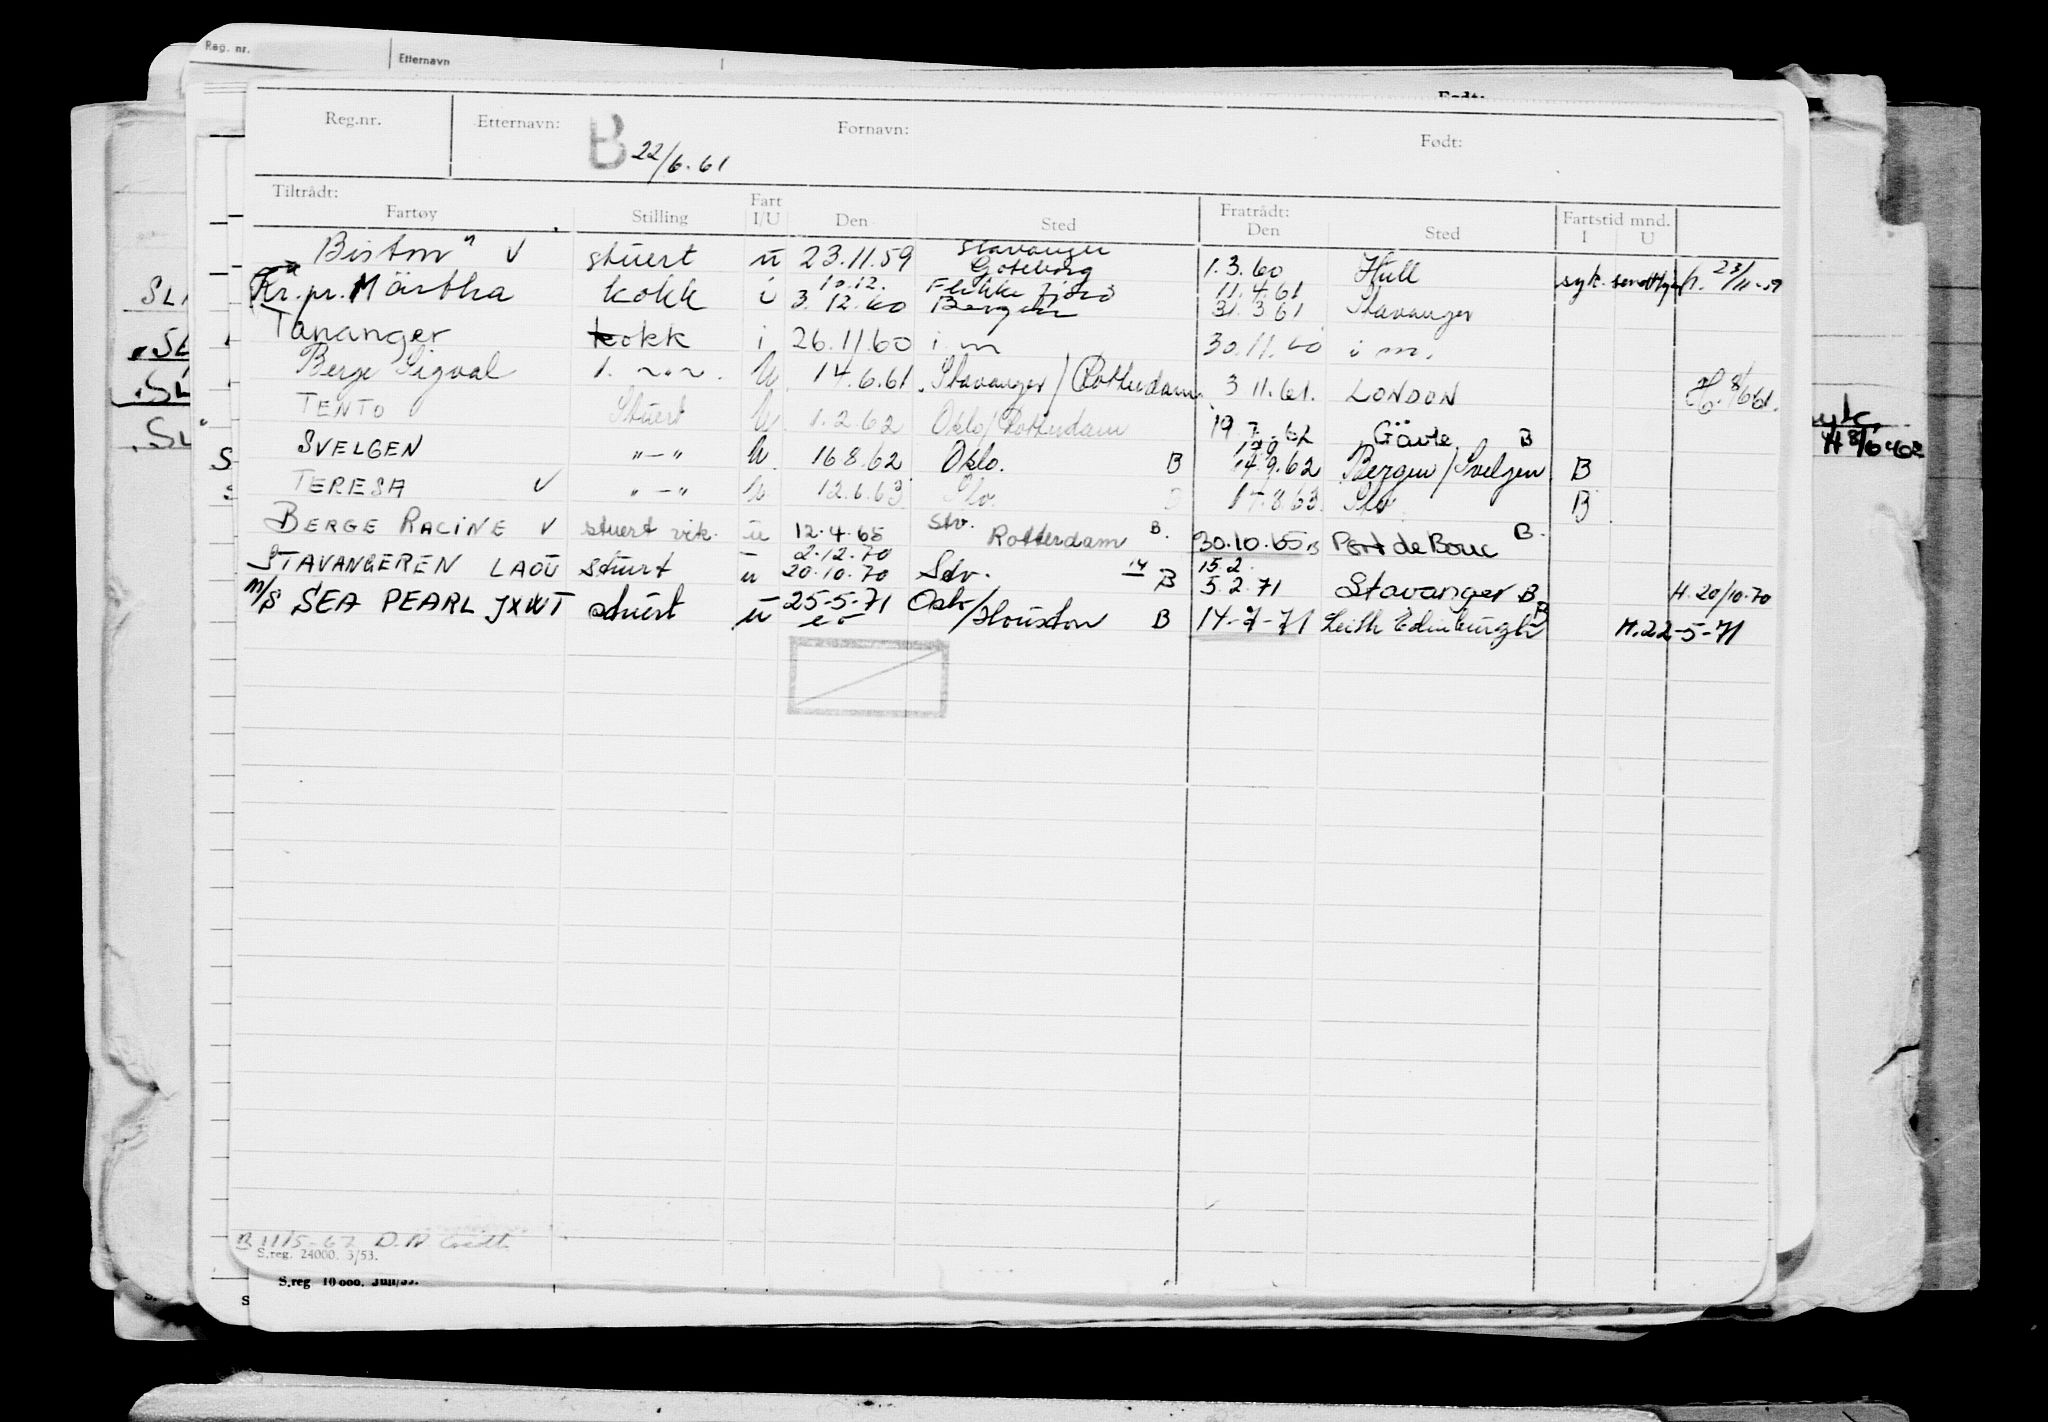 Reg. nr. Etternavn
Født:
Reg.nr. Etternavn: Fornavn: Født:
B 22/6.61
Tiltrådt: Fratrådt: Fartstid mnd.
Fartøy Stilling Fart I/U Den Sted Den Sted I U
Stavanger
" v stuert u 23.11.59 Göteborg 1.3.60 Hull syk. 23/11-59
10.12. Flekkefjord 11.4.61
Kr.pr. Märtha kokk i 3.12.60 Bergen 31.3.61 Stavanger
Tananger kokk i 26.11.60 i m 30.11.60 i m.
Berge Sigval 1. -"- U. 14.6.61. Stavanger / Rotterdam 3 11.61. LONDON H. 8/6 61.
TENTO Stuert U. 1.2.62 Oslo/Rotterdam 19 7.62 Gävle B
SVELGEN "-" U. 16 8.62 Oslo. B 14.9.62 Bergen/Svelgen B
TERESA v "-" U 12.6.63 Slo. 17.8.63. Slo B
BERGE RACINE v stuert vik. u 12.4.65 Stv. Rotterdam B. 30.10.65 B Port de Bouc B.
2.12.70 15.2.
STAVANGEREN LAOU stuert u 20.10.70 Sdv. 14 B 5.2.71 Stavanger B H. 20/10.70
M/S SEA PEARL JXWT stuert u 25-5-71 Oslo/Houston B 14-7-71 Leith Edinburgh B H.22-5-71
B 11/5-67 D.A
S.reg. 24000. 3/53.
S.reg 10 000.